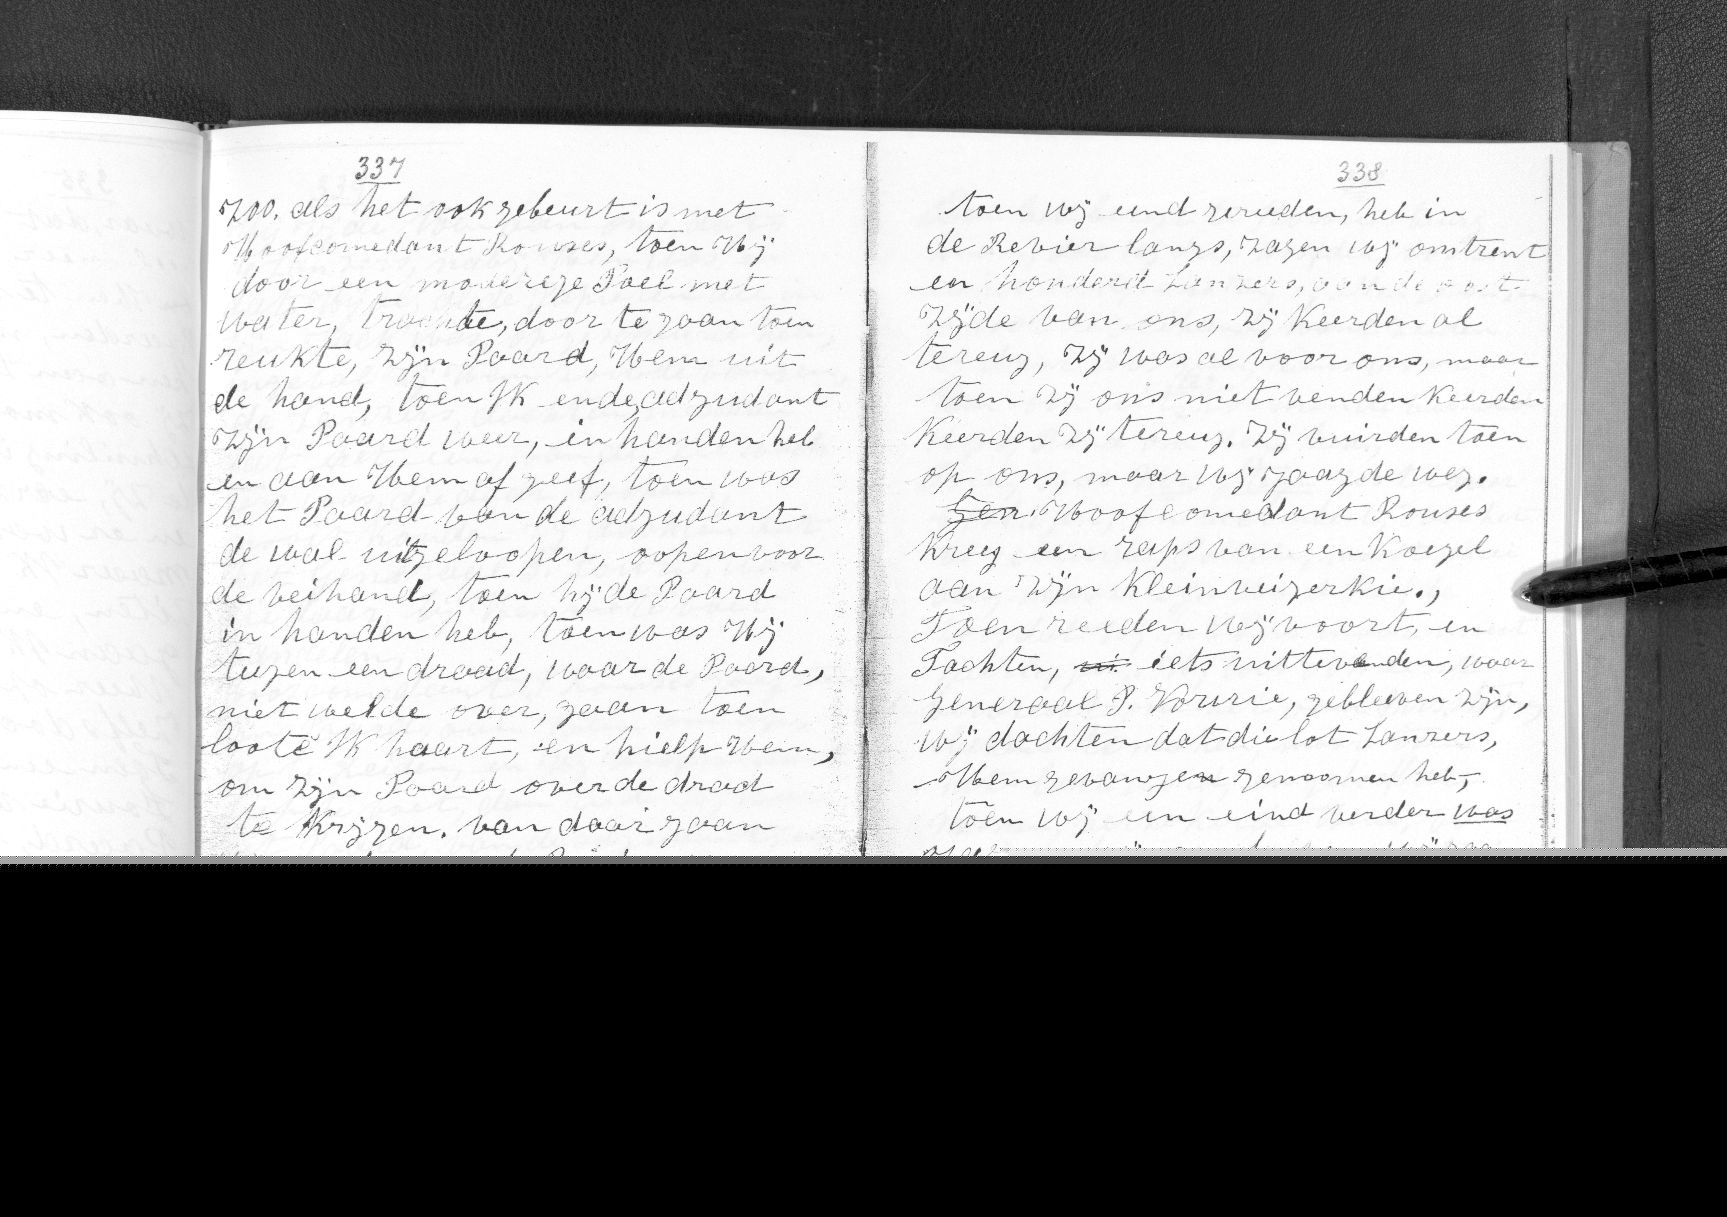 337
zoo. als het ook gebeurt is met
Hoofcomedant Rouses, toen Wij
door een moderege Poel met
water, trachte, door te gaan toen
reukte, zijn Paard, Hem uit
de hand, toen Ik ende, adjudant
zijn Paard weer, in handen heb
en aan Hem af geef, toen was
het Paard van de adjudant
de wal uitgeloopen, oopen voor
de veihand, toen hij de Paard
in handen heb, toen was Wij
tegen een draad, waar de Paard,
niet welde over, gaan toen
loote Ik haart, en hielp Hem,
om zijn Paard over de drad
te Krijgen. van daar gaan
338
toen wij eind gereeden, heb in
de Revier langs, zagen wij omtrent
en honderd Lanzers, aan de oost.
zijde van ons, zij Keerden al
tereug, zij was al voor ons, maar
toen zij ons niet venden Keerden
Keerden zij tereug. zij vuirden toen
op ons, maar wij jaagde weg.
Gen. Hoofcomedant Rouses
Kreeg een raps van een Koegel
aan zijn Kleinveigerkie.,
Toen reeden wij voort, en
Tachten, iets uittevenden, waar
Generaal P. Fourie, gebleeven zijn,
wij dachten dat die lot Lanzers,
Hem gevangen genoomen heb,
toen wij een eind verder was